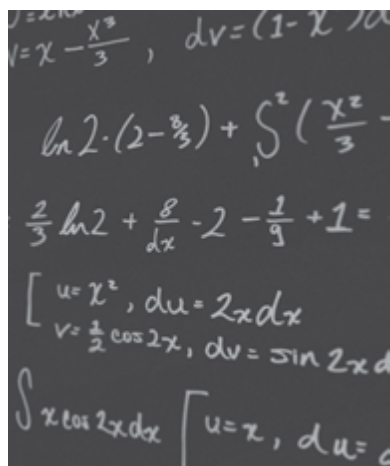 v=x-x³/3, dv=(1-x
ln2·(2-8/3)+∫₁²(x²/3-
2/3 ln2+8/dx-2-1/9+1=
[u=x², du=2xdx
v=1/2 cos2x, dv=sin2x
∫xcos2xdx [u=x, du=